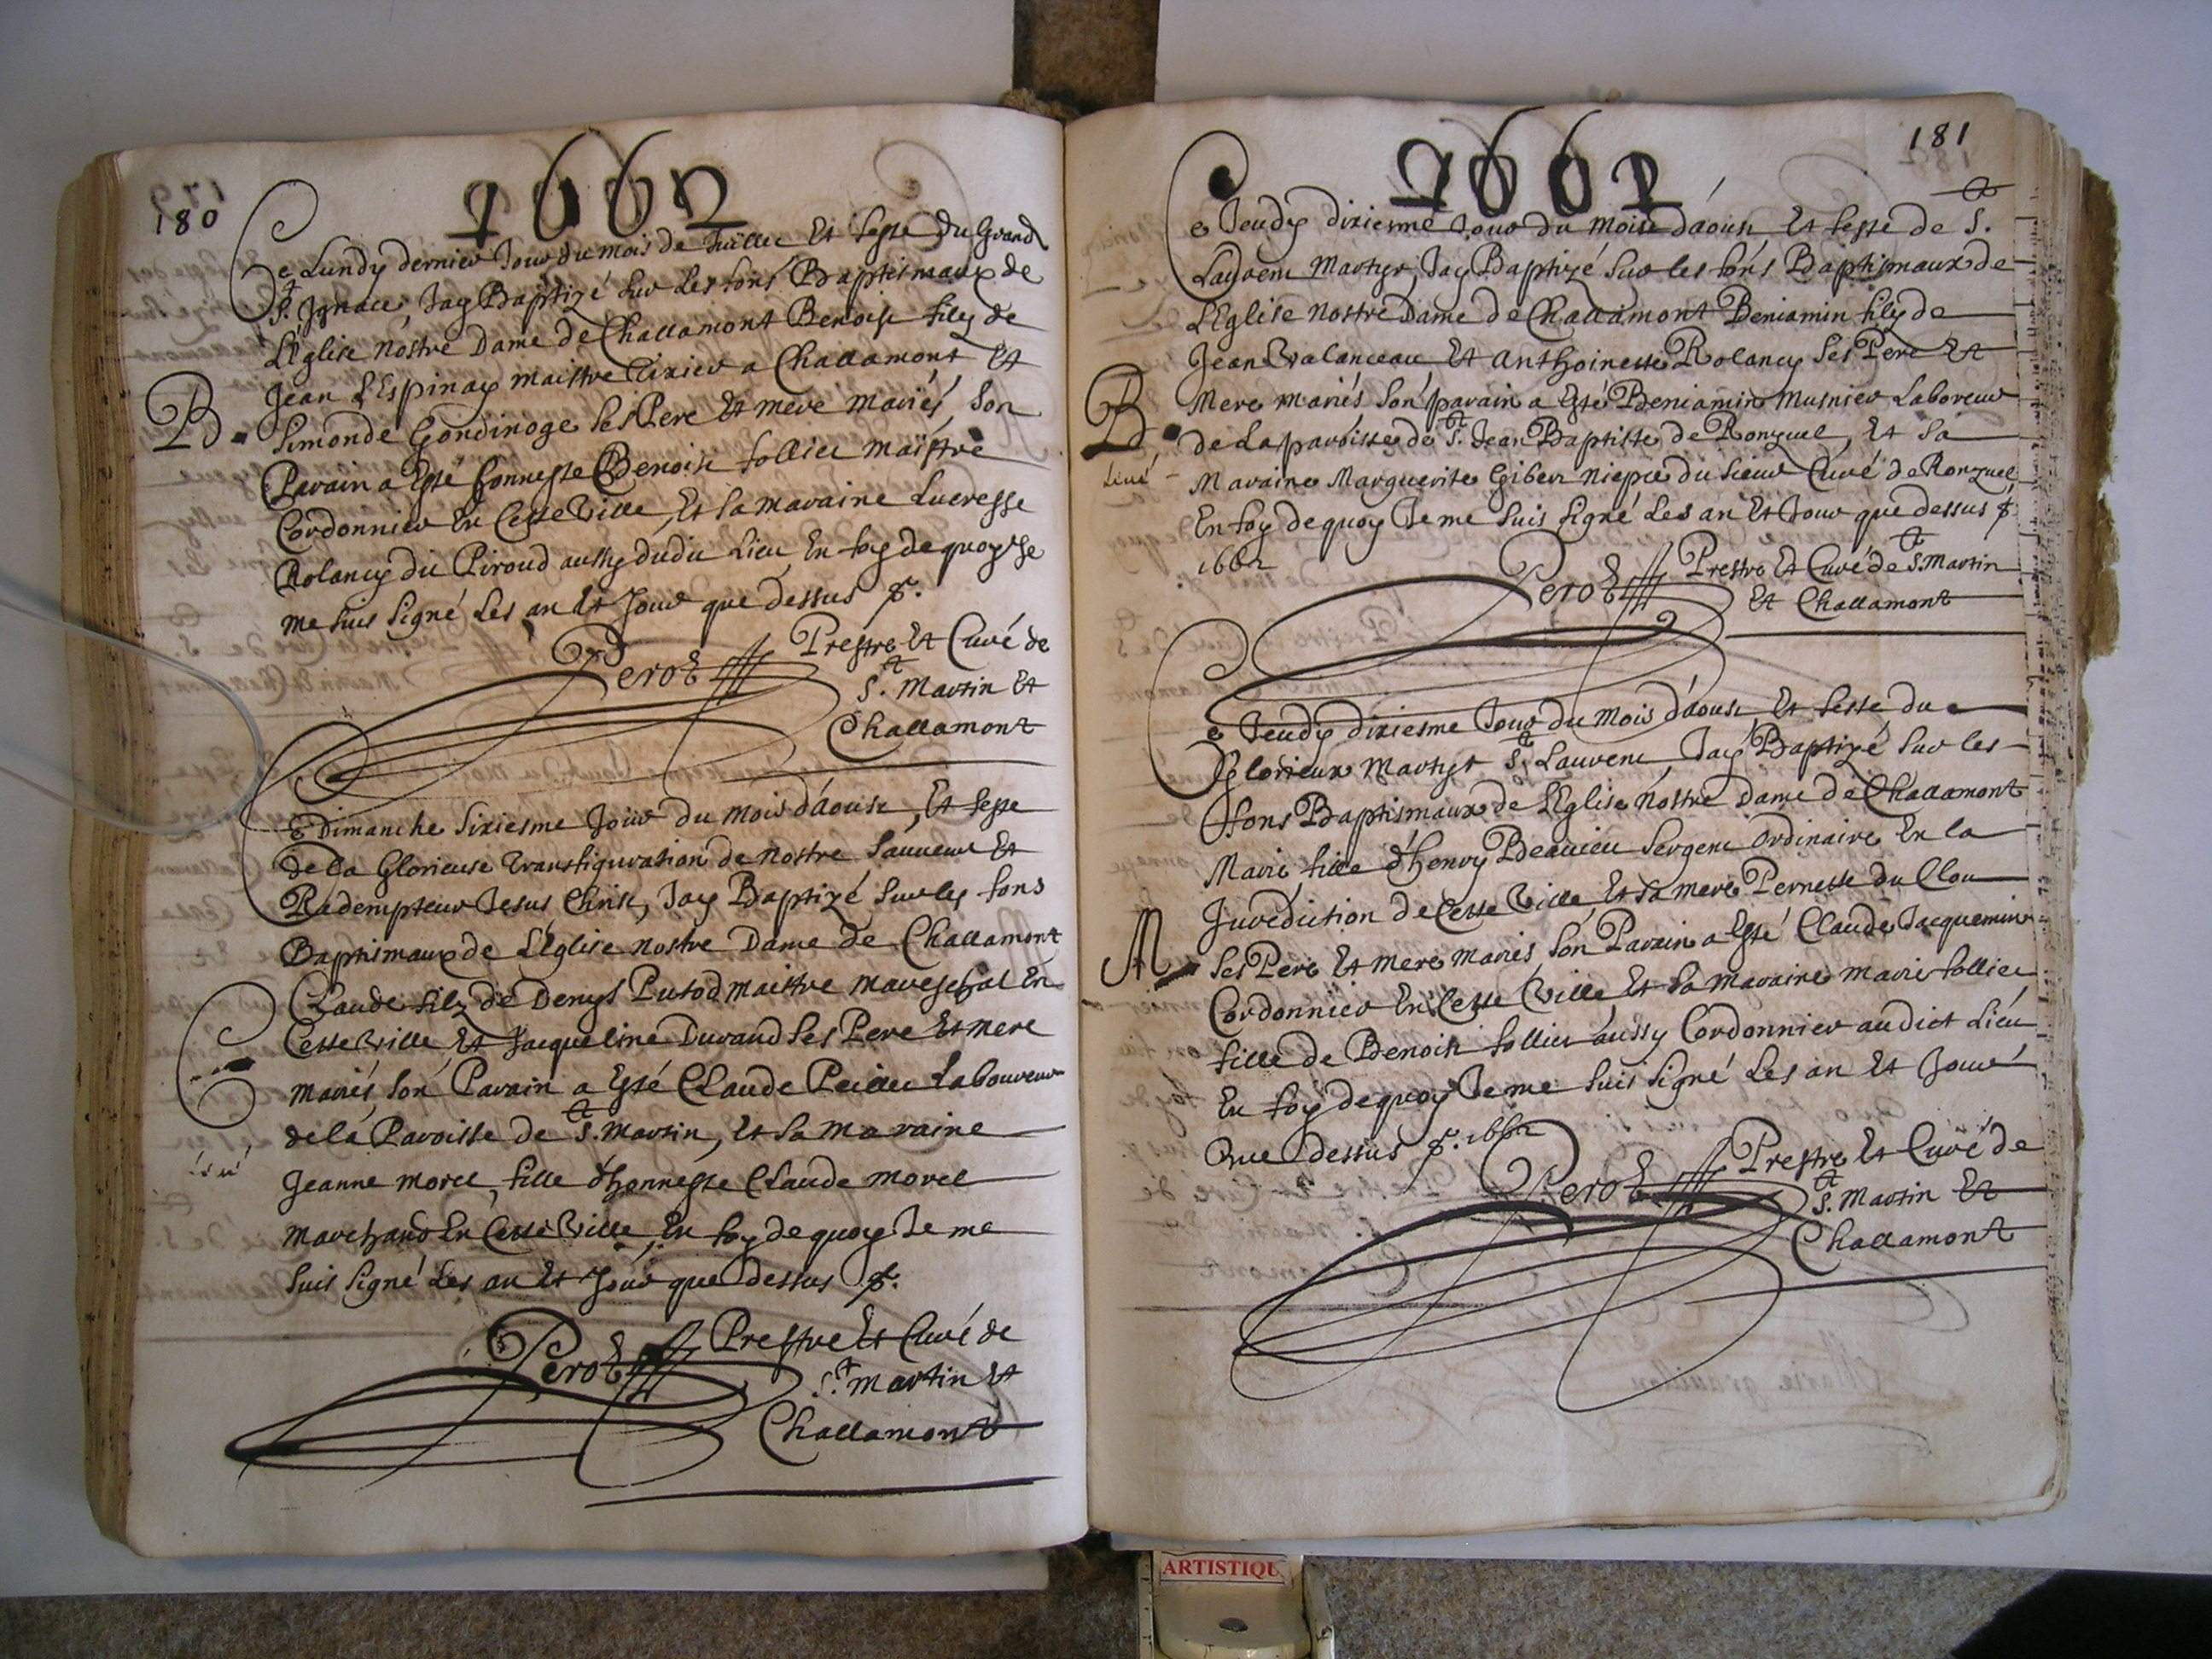 180
1662
Ce Lundy dernier Jour du mois de Juillet Et feste du Grand
St. Ignace, Jay Baptizé sur Les fons Baptismaux de
L'Eglise Nostre Dame de Challamont Benoist filz de
Jean L'Espinay maistre Tixier a Challamont, Et
Simonde Gondinoge ses Pere Et mere Mariés, Son
B.
Parain a Esté honneste Benoist follier Maistre
Cordonnier En Ceste Ville, Et sa maraine Lucresse
Rolancy du Piroud aussy dudit Lieu, En foy de quoy Je
me suis Signé Les an Et Jour que dessus
Perot Prestre Et Curé de
St. Martin Et
Challamont
Ce Dimanche Sixiesme Jour du mois d'aoust, Et feste
de la Glorieuse Transfiguration de nostre Sauveur Et
Radempteur Jesus Christ, Jay Baptizé Sur les fons
Baptismaux de L'Eglise Nostre Dame de Challamont
Claude filz de Denys Putod maistre mareschal En
Ceste Ville Et Jacqueline Durand ses Pere Et mere
C
mariés son Parain a Esté Claude Laboureur
de la Paroisse de St. Martin, Et sa Maraine
Jeanne Morel, fille d'honneste Claude Morel
Marchand En Ceste Ville, En foy de quoy Je me
suis Signé Les an Et Jour que dessus
Perot Prestre Et Curé de
St. Martin Et
Challamont
181
1662
Ce Jeudy dixiesme Jour du Mois d'aoust Et feste de St.
Laurent Martyr, Jay Baptizé sur les fons Baptismaux de
L'Eglise Nostre Dame de Challamont Beniamin filz de
Jean Valanceau Et Anthoinette Rolancy ses Pere Et
B
Mere mariés Son parain a Esté Beniamin Musnier Laboreur
de La paroisse de St. Jean Baptiste de Ronzuel, Et sa
Maraine Marguerite Gibert Niepce du Sieur Curé de Ronzuel
En foy de quoy Je me suis signé Les an Et Jour que dessus
1662
Perot Prestre Et Curé de St. Martin
Et Challamont
Ce Jeudy dixiesme Jour du Mois d'aoust Et feste du
Glorieux Martyr St. Laurent, Jay Baptizé Sur les
fons Baptismaux de L'Eglise Nostre Dame de Challamont
Marie fille d'henry Beauieu Sergent Ordinaire En la
Jurediction de Ceste Ville Et sa mere Pernette du Clou
M
Ses Pere Et mere mariés Son Parain a Esté Claude Jacquemin
Cordonnier En Ceste Ville Et sa Maraine Marie follier
fille de Benoist follier aussy Cordonnier audict Lieu
En foy de quoy Je me suis Signé Les an Et Jour
Que dessus 1662
Perot Prestre Et Curé de
St. Martin Et
Challamont
ARTISTIQU